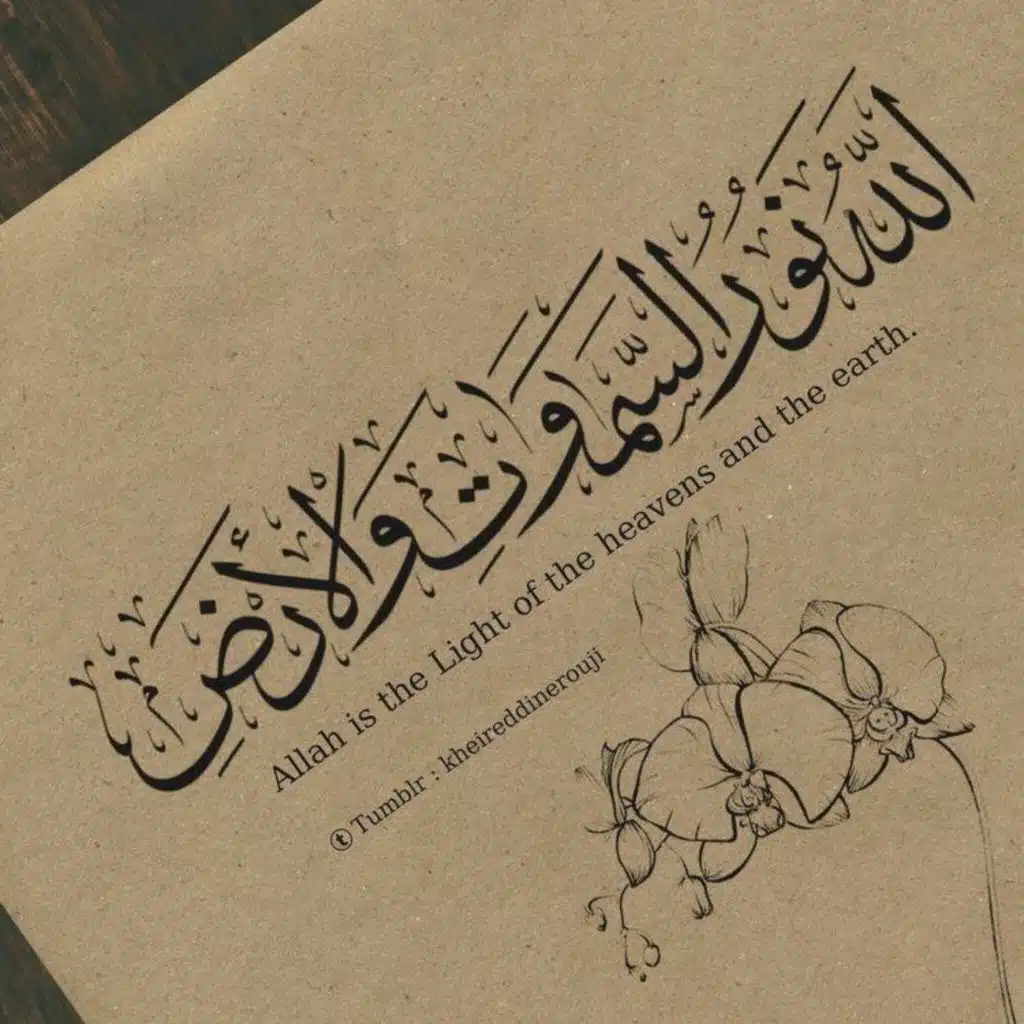 اللَّهُ نُورُ السَّمَاوَاتِ وَالْأَرْضِ
Allah is the Light of the heavens and the earth.
ⓣ Tumblr : kheireddinerouji